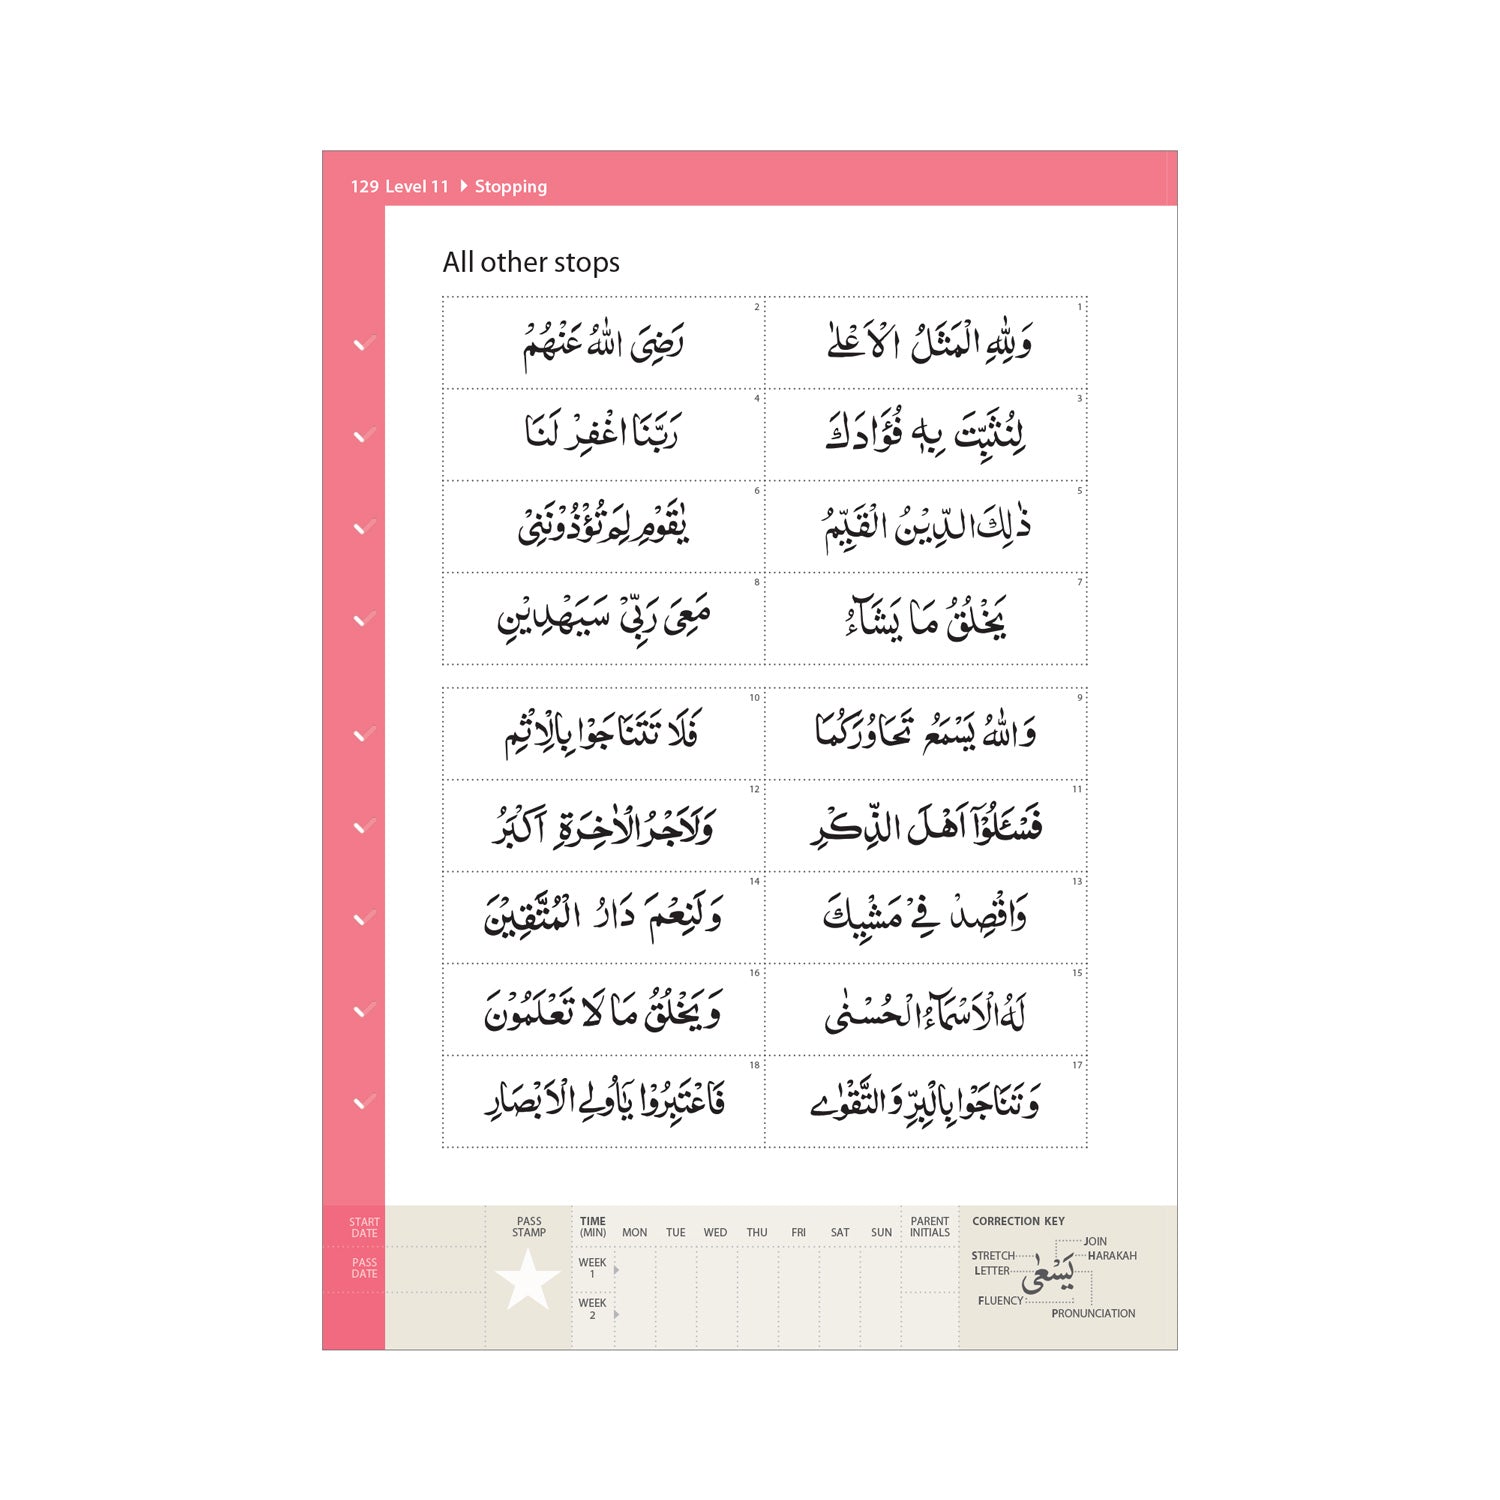 129 Level 11 ▸ Stopping
All other stops
1
وَلِلّٰهِ الْمَثَلُ الْاَعْلٰى
2
رَضِىَ اللّٰهُ عَنْهُمْ
3
لِنُثَبِّتَ بِهٖ فُؤَادَكَ
4
رَبَّنَا اغْفِرْ لَنَا
5
ذٰلِكَ الدِّيْنُ الْقَيِّمُ
6
يٰقَوْمِ لِمَ تُؤْذُوْنَنِىْ
7
يَخْلُقُ مَا يَشَآءُ
8
مَعِىَ رَبِّىْ سَيَهْدِيْنِ
9
وَاللّٰهُ يَسْمَعُ تَحَاوُرَكُمَا
10
فَلَا تَتَنَاجَوْا بِالْاِثْمِ
11
فَسْـَٔلُوْٓا اَهْلَ الذِّكْرِ
12
وَلَاَجْرُ الْاٰخِرَةِ اَكْبَرُ
13
وَاقْصِدْ فِىْ مَشْيِكَ
14
وَلَنِعْمَ دَارُ الْمُتَّقِيْنَ
15
لَهُ الْاَسْمَآءُ الْحُسْنٰى
16
وَيَخْلُقُ مَا لَا تَعْلَمُوْنَ
17
وَتَنَاجَوْا بِالْبِرِّ وَالتَّقْوٰى
18
فَاعْتَبِرُوْا يٰٓاُولِى الْاَبْصَارِ
START DATE
PASS DATE
PASS STAMP
TIME (MIN) MON TUE WED THU FRI SAT SUN
WEEK 1
WEEK 2
PARENT INITIALS
CORRECTION KEY
JOIN
STRETCH
HARAKAH
LETTER
يَسْعٰى
FLUENCY
PRONUNCIATION